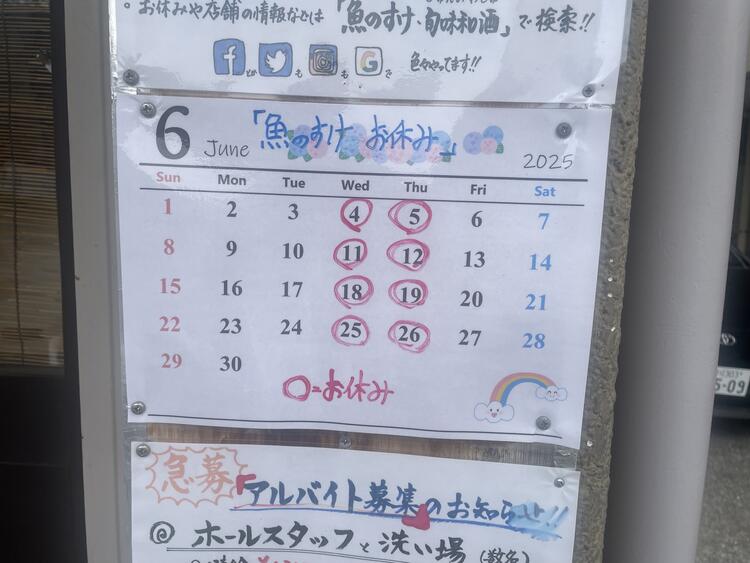 。お休みや店舗の情報などは「魚のすけ・旬味和酒」で検索!!
f とか も も G で 色々やってます!!
6 June 「魚のすけ お休み」 2025
Sun Mon Tue Wed Thu Fri Sat
1 2 3 4 5 6 7
8 9 10 11 12 13 14
15 16 17 18 19 20 21
22 23 24 25 26 27 28
29 30
○=お休み
急募 「アルバイト募集」のお知らせ!!
◎ ホールスタッフと洗い場(数名)
5-09